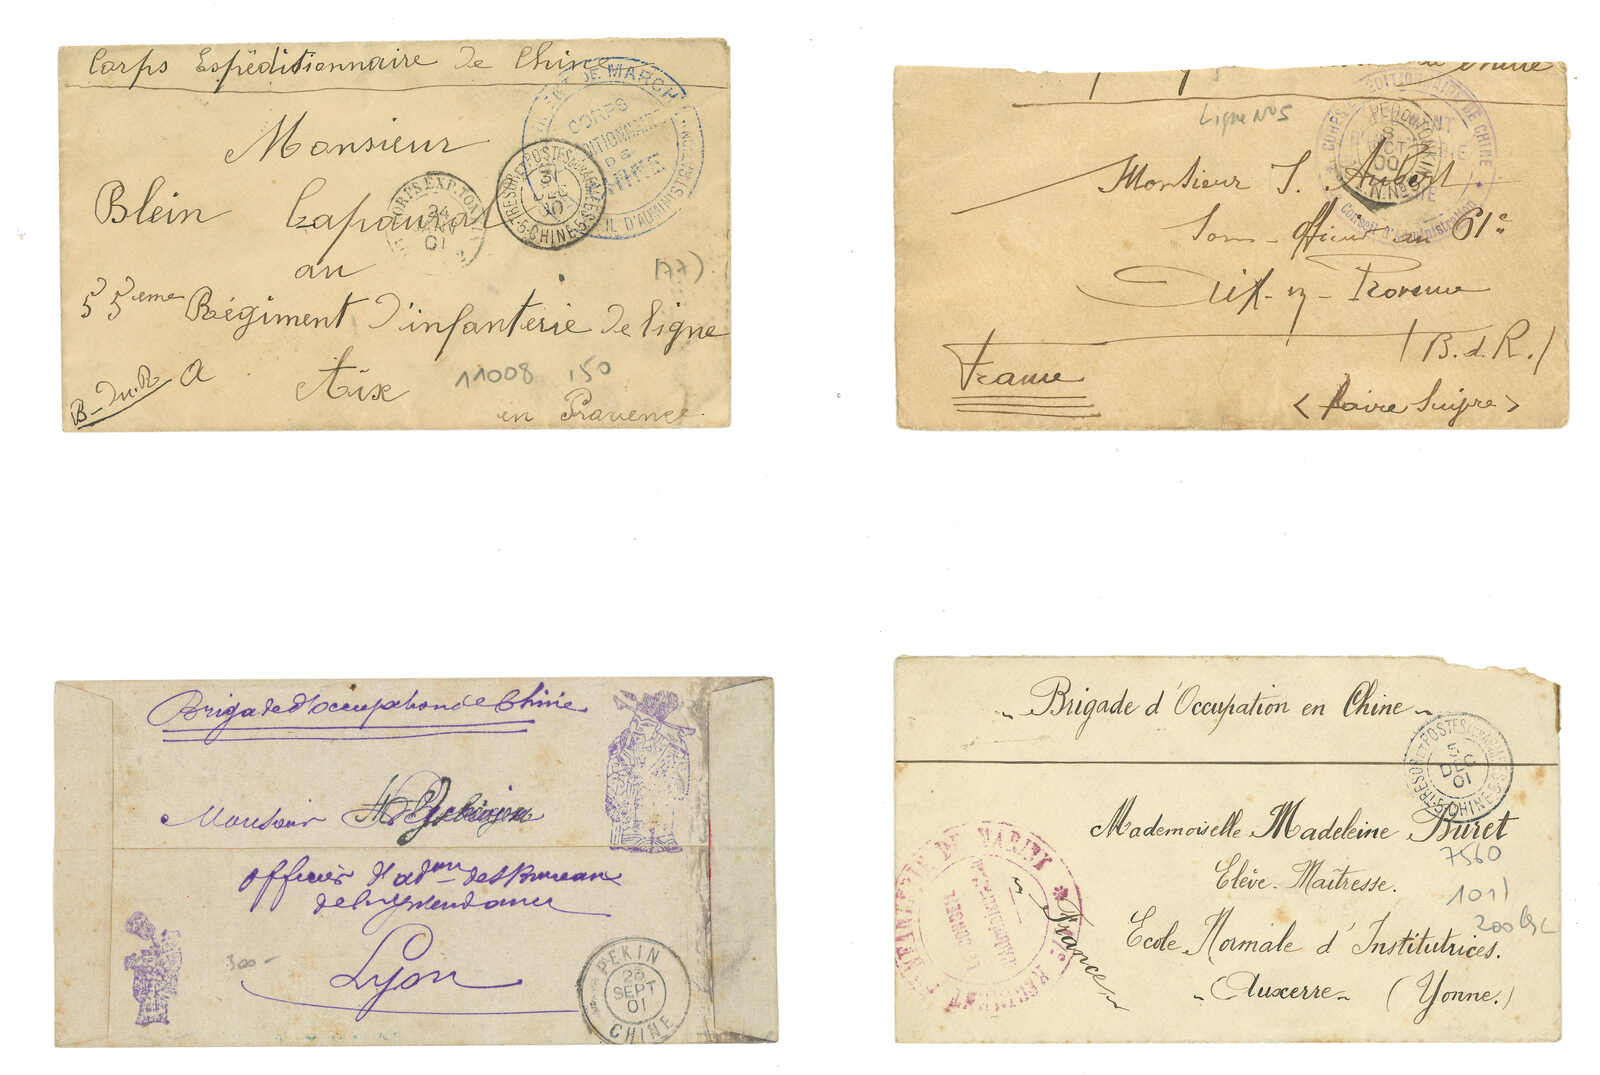 Corps Expéditionnaire de Chine
Monsieur
Blein Lapautal
au
55ème Régiment d'infanterie de ligne
B-du-R A Aix
en Provence.
11008 150
177)
DE MARCH
CORPS
DE
CHINE
CONSEIL D'ADMINISTRATION
TRESOR ET POSTES AUX ARMEES
31
DEC
00
5 CHINE 5
CORPS EXP. TONKIN
24
JANV
01
de Chine
Ligne N°5
Monsieur J. Aubert
Sous-Officier au 61e
Aix-en-Provence
(B.d.R.)
France
<Faire Suivre>
CORPS EXPEDITIONNAIRE DE CHINE
Conseil d'administration
OCT
00
Brigade d'occupation de Chine
Monsieur
Officier d'adon des Bureaux
de l'Intendance
Lyon
300-
PEKIN
26
SEPT
01
CHINE
- Brigade d'Occupation en Chine -
Mademoiselle Madeleine Buret
7560
Elève-Maîtresse.
101)
200
Ecole Normale d'Institutrices.
- Auxerre - (Yonne.)
- France -
TRESOR ET POSTES AUX ARMEES
5
DEC
01
CHINE
REGIMENT D'INFANTERIE DE MARINE
LE CONSEIL
D'ADMINISTRATION